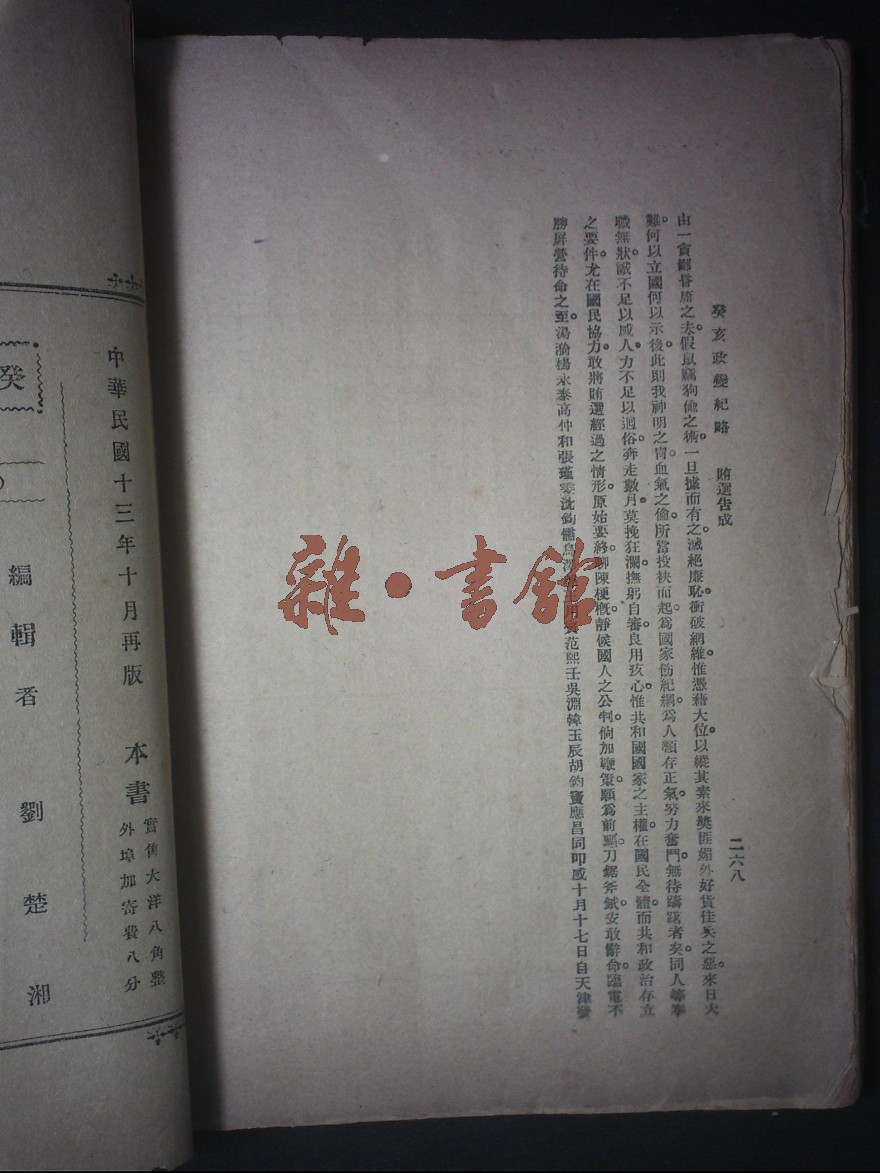 癸亥政變紀略　賄選告成
二六八
由一貪鄙昏庸之夫。假鼠竊狗偷之術。一旦據而有之。滅絕廉恥。衝破網維。惟憑藉大位。以縱其素來獎匪媚外好貨佳兵之惡。來日大
難。何以立國何以示後。此則我神明之冑血氣之倫。所當投袂而起。爲國家飭紀綱。爲人類存正氣。努力奮鬥。無待躊躇者矣。同人等奉
職無狀。誠不足以感人。力不足以迴俗。奔走數月。莫挽狂瀾。撫躬自審。良用疚心。惟共和國國家之主權。在國民全體。而共和政治存立
之要件。尤在國民協力。敢將賄選經過之情形。原始要終。聊陳梗概。靜候國人之公判。倘加鞭策。願爲前驅。刀鋸斧鉞。安敢辭命。臨電不
勝屏營待命之至。湯漪楊永泰高仲和張瑾雯沈鈞儒烏澤范熙壬吳淵韓玉辰胡鈞竇應昌同叩感十月十七日自天津發
雜·書館
中華民國十三年十月再版
本書
實價大洋八角整
外埠加寄費八分
癸
編輯者　劉楚湘